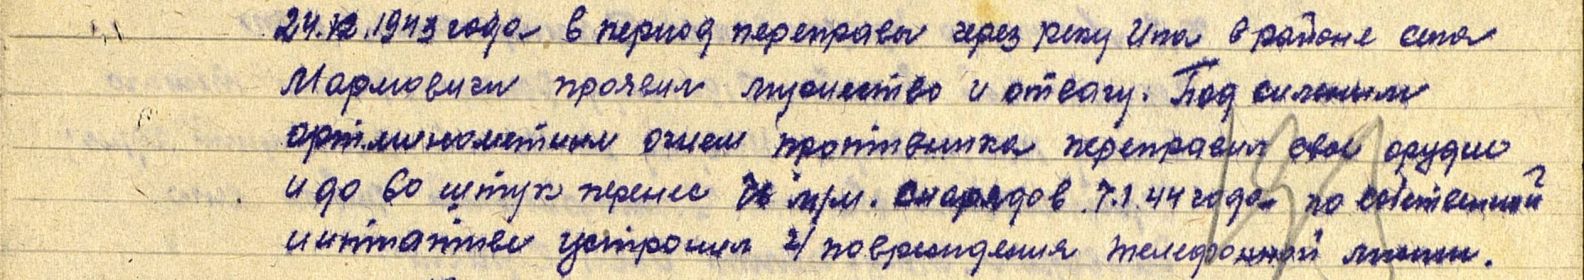 24.12.1943 года в период переправы через реку Ипа в районе села
Мармовичи проявил мужество и отвагу. Под сильным
арт.минометным огнем противника переправил свое орудие
и до 60 штук перенес 76 м/м. снарядов. 7.1.44 года по собственной
инициативе устранил 21 повреждения телефонной линии.